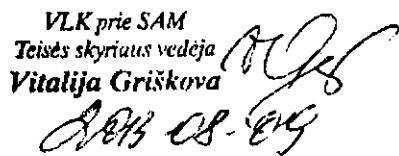 VLK prie SAM
Teisės skyriaus vedėja
Vitalija Griškova